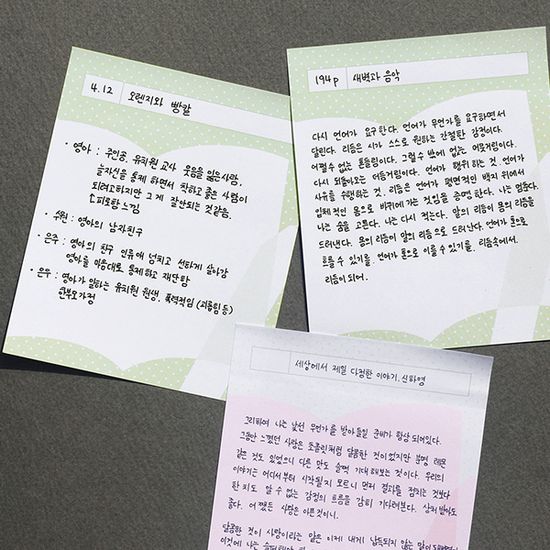 4.12 오렌지와 빵칼
• 영아 : 주인공, 유치원 교사 웃음을 잃은 사람.
스스로를 통제 하면서 착하고 좋은 사람이
되려고하지만 그게 잘안되는 것같음.
↳ 피로함 느낌
• 수원 : 영아의 남자친구
• 은주 : 영아의 친구 인류애 넘치고 선하게 살아감
영아를 마음대로 통제하고 재단함
• 은우 : 영아가 일하는 유치원 원생. 폭력적임 (괴롭힘 등)
한부모가정
194p 새벽과 음악
다시 언어가 요구한다. 언어가 무언가를 요구하면서
달린다. 리듬은 시가 스스로 원하는 간절한 감정이다.
어쩔수 없는 흔들림이다. 그럴수 밖에 없는 머뭇거림이다.
다시 되돌아오는 더듬거림이다. 언어가 행위 하는 것. 언어가
사유를 수행하는 것. 리듬은 언어가 평면적인 백지 위에서
입체적인 몸으로 바뀌어 가는 것임을 증명한다. 나는 멈춘다.
나는 숨을 고른다. 나는 다시 적는다. 말의 리듬이 몸의 리듬을
드러낸다. 몸의 리듬이 말의 리듬으로 드러난다. 언어가 몸으로
흐를 수 있기를. 언어가 몸으로 이를 수 있기를. 리듬속에서.
리듬이 되어.
세상에서 제일 다정한 이야기. 신하영
그리하여 나는 낯선 무언가를 받아들일 준비가 항상 되어있다.
그동안 느꼈던 사랑은 초콜릿처럼 달콤한 것이 었지만 분명 레몬
같은 것도 있었으니 다른 맛도 슬쩍 기대해보는 것이다. 우리의
이야기는 어디서부터 시작될지 모르니 먼저 결과를 정하는 것보다
한 치도 알 수 없는 감정의 흐름을 감히 기다려본다. 상처 받아도
좋다. 어쨌든 사랑은 이룬것이니.
달콤한 것이 사랑이라는 말은 이제 내게 납득되지 않는 말
이것에 나는